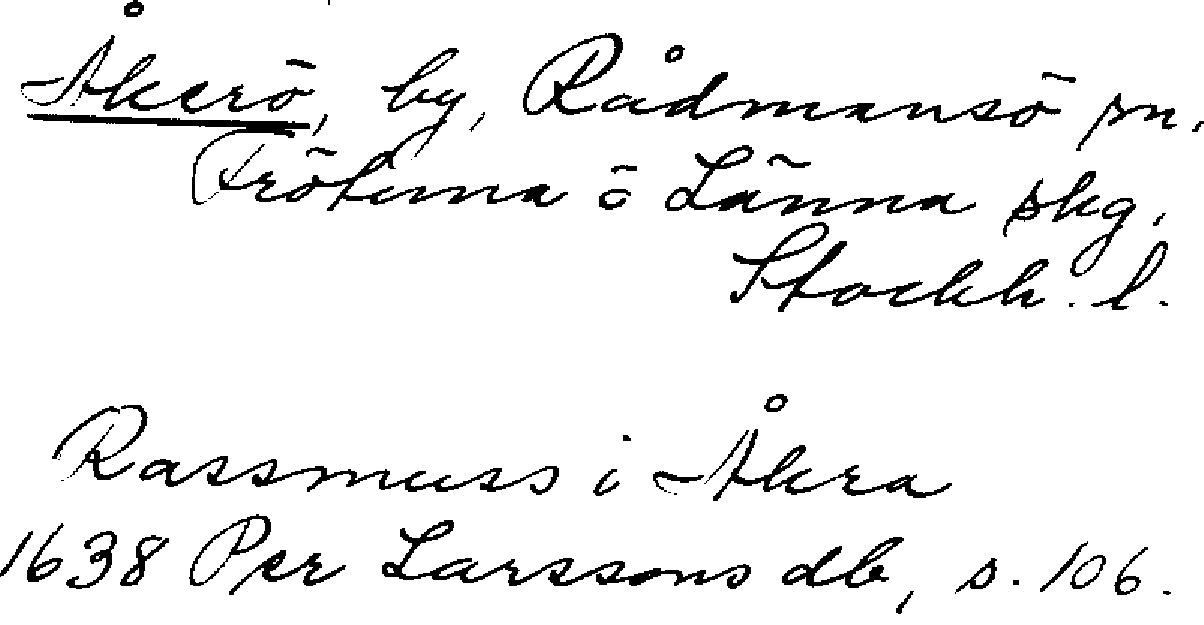 Åkerö, by, Rådmansö sn,
Frötuna o Länna skg,
Stockh. l.
Rassmuss i Åkra
1638 Per Larssons db, s. 106.